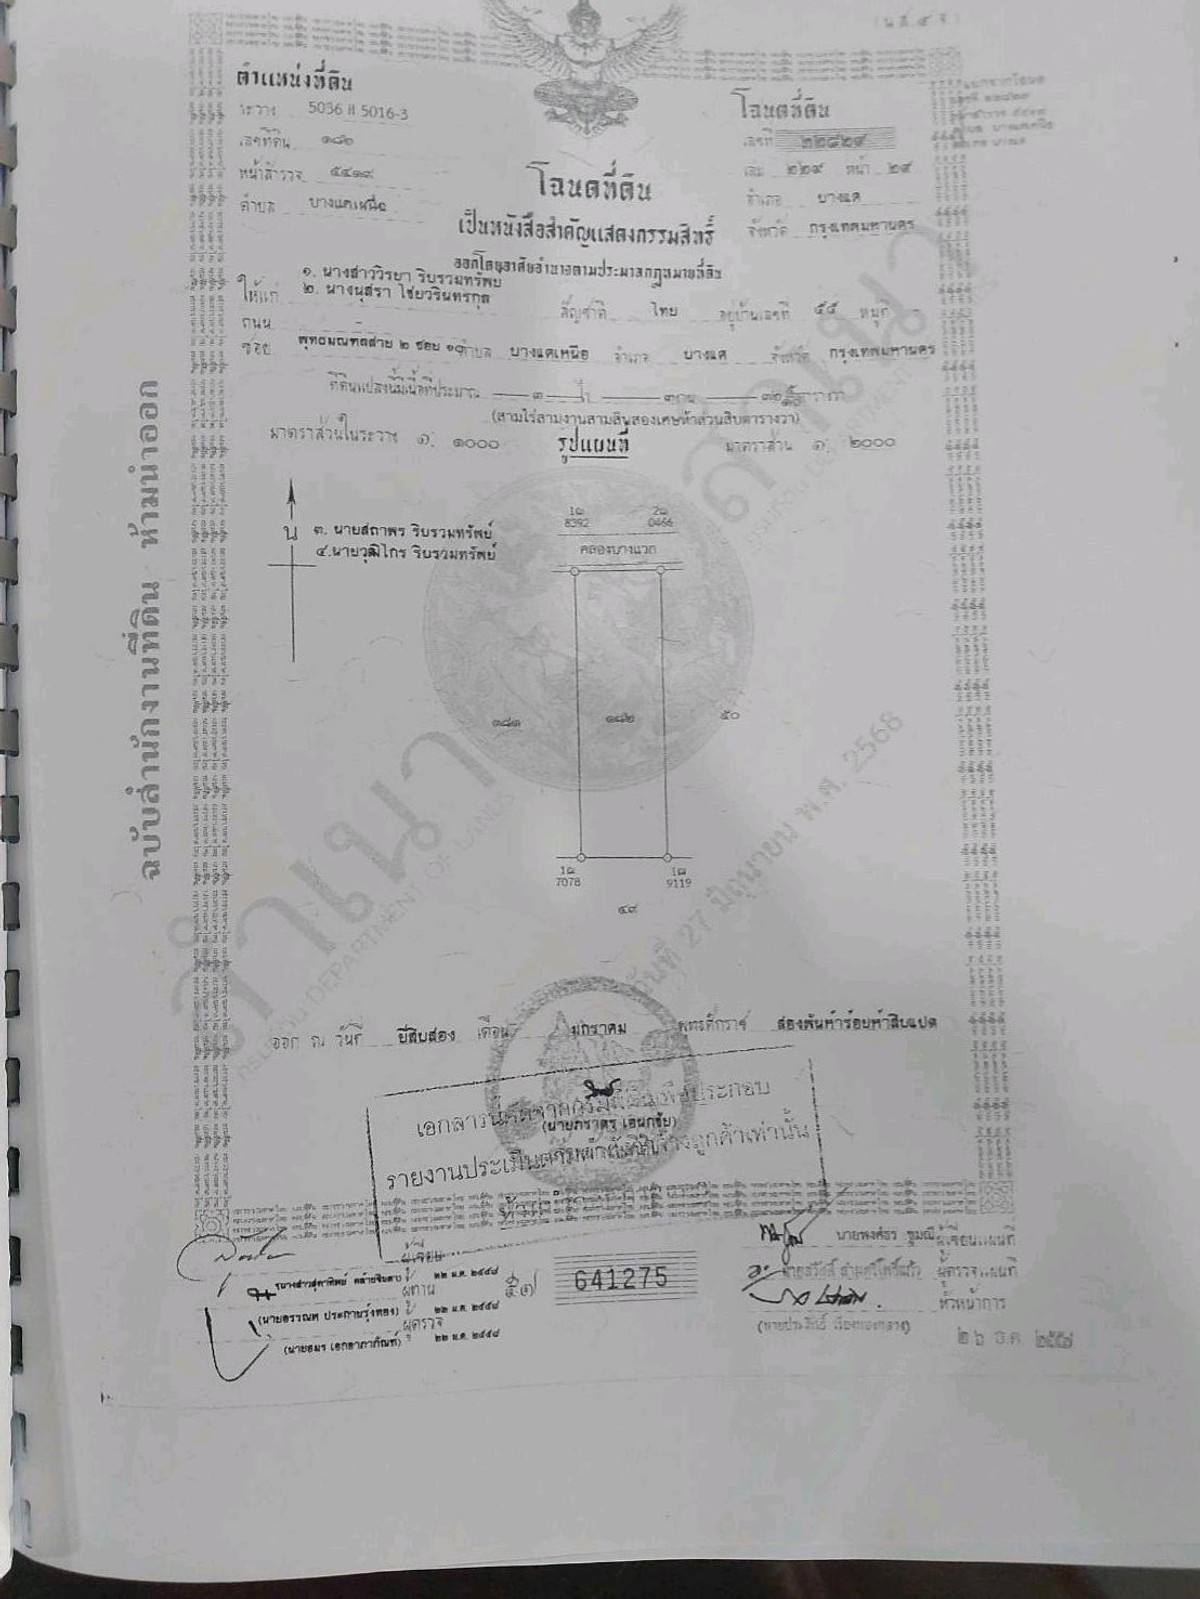 (น.ส. ๔ จ.)
ตำแหน่งที่ดิน
ระวาง 5036 II 5016-3
เลขที่ดิน ๑๘๒
หน้าสำรวจ ๕๔๑๙
ตำบล บางแคเหนือ
โฉนดที่ดิน
เลขที่ ๒๒๘๒๙
เล่ม ๒๒๙ หน้า ๒๙
อำเภอ บางแค
จังหวัด กรุงเทพมหานคร
โฉนดที่ดิน
เป็นหนังสือสำคัญแสดงกรรมสิทธิ์
ออกโดยอาศัยอำนาจตามประมวลกฎหมายที่ดิน
ให้แก่ ๑. นางสาววิรยา ริบรวมทรัพย์
๒. นางนุสรา ไชยวรินทรกุล สัญชาติ ไทย อยู่บ้านเลขที่ ๕๕ หมู่ที่ -
ถนน
ซอย พุทธมณฑลสาย ๒ ซอย ๑๐ ตำบล บางแคเหนือ อำเภอ บางแค จังหวัด กรุงเทพมหานคร
ที่ดินแปลงนี้มีเนื้อที่ประมาณ ๓ ไร่ ๓ งาน ตารางวา
(สามไร่สามงานสามสิบสองเศษห้าส่วนสิบตารางวา)
มาตราส่วนในระวาง ๑: ๑๐๐๐ รูปแผนที่ มาตราส่วน ๑: ๒๐๐๐
น
๓. นายสถาพร ริบรวมทรัพย์
๔.นายวุฒิไกร ริบรวมทรัพย์
1ฌ 8392
2ฌ 0466
คลองบางแวก
๑๘๑ ๑๘๒ ๕๐
1ฌ 7078
1ฌ 9119
๔๙
ฉบับสำนักงานที่ดิน ห้ามนำออก
สำเนา
กรมที่ดิน DEPARTMENT OF LANDS
วันที่ 27 มิถุนายน พ.ศ. 2568
ออก ณ วันที่ ยี่สิบสอง เดือน มกราคม พุทธศักราช สองพันห้าร้อยห้าสิบแปด
เอกสารนี้คัดจากกรมที่ดินเพื่อประกอบ
รายงานประเมิน ลูกค้าเท่านั้น
ผู้เขียน
๒๒ ม.ค. ๒๕๕๘
ผู้ทาน
(นายอรรณพ ประภายรุ้งทอง) ๒๒ ม.ค. ๒๕๕๘
ผู้ตรวจ
(นายอมร เอกอาภาภัณฑ์) ๒๒ ม.ค. ๒๕๕๘
641275
ผู้เขียนแผนที่
ผู้ตรวจแผนที่
หัวหน้าการ
๒๖ ธ.ค. ๒๕๕๗